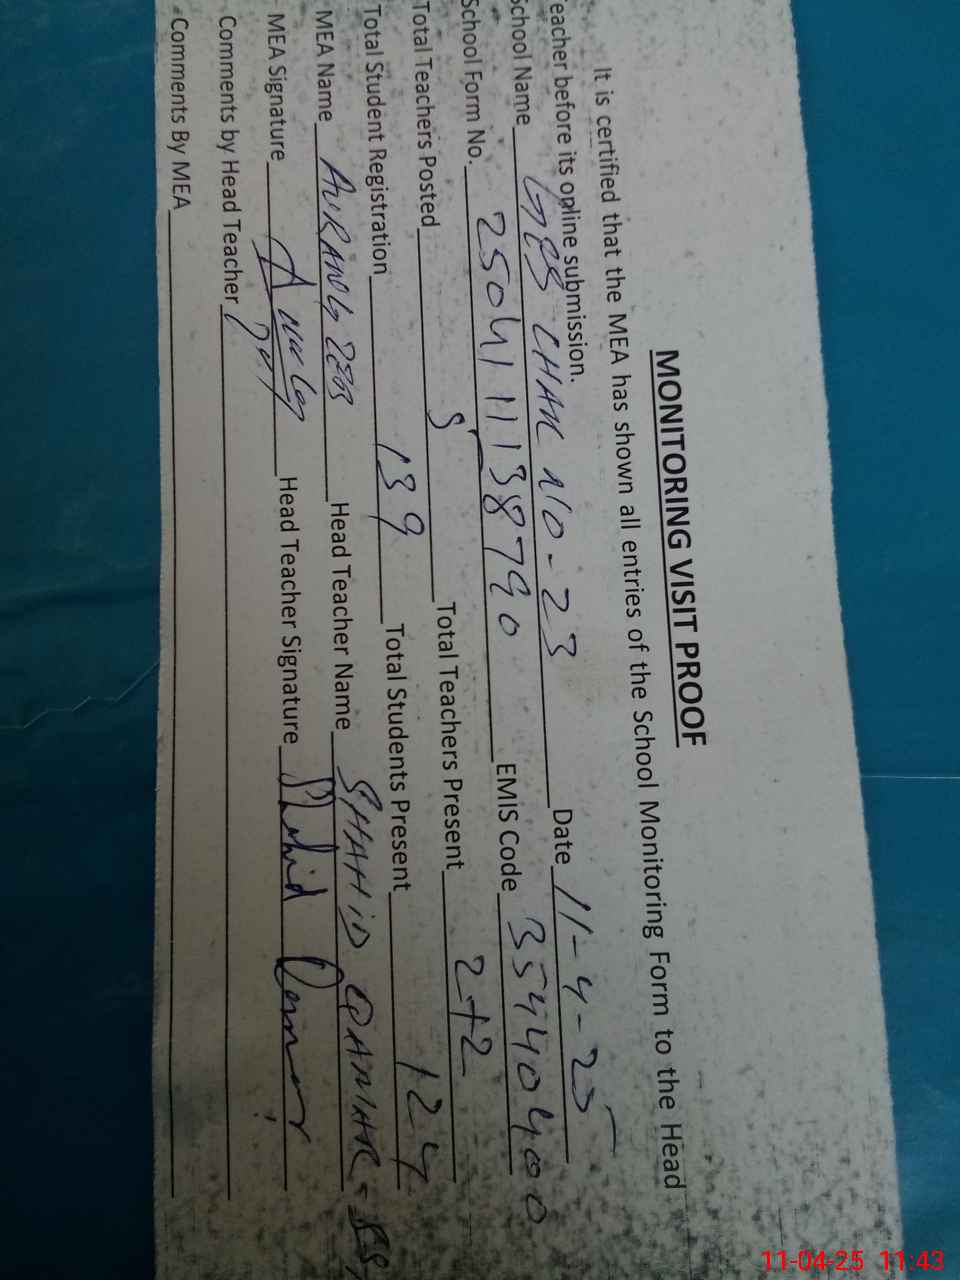 MONITORING VISIT PROOF
It is certified that the MEA has shown all entries of the School Monitoring Form to the Head
eacher before its online submission.
School Name GES CHAK NO-23 Date 11-4-25
School Form No. 250411138790 EMIS Code 35440400
Total Teachers Posted 5 Total Teachers Present 2+2
Total Student Registration 139 Total Students Present 124
MEA Name AURANGZEB Head Teacher Name SHAHID QAMAR
MEA Signature Head Teacher Signature Shahid Qamar
Comments by Head Teacher
Comments By MEA
11-04-25 11:43